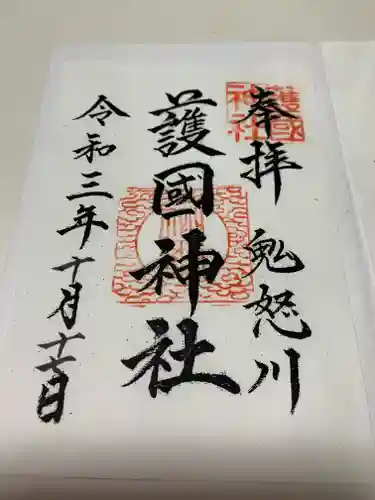 奉拝
鬼怒川
護國神社
護國
神社
令和三年十月十七日